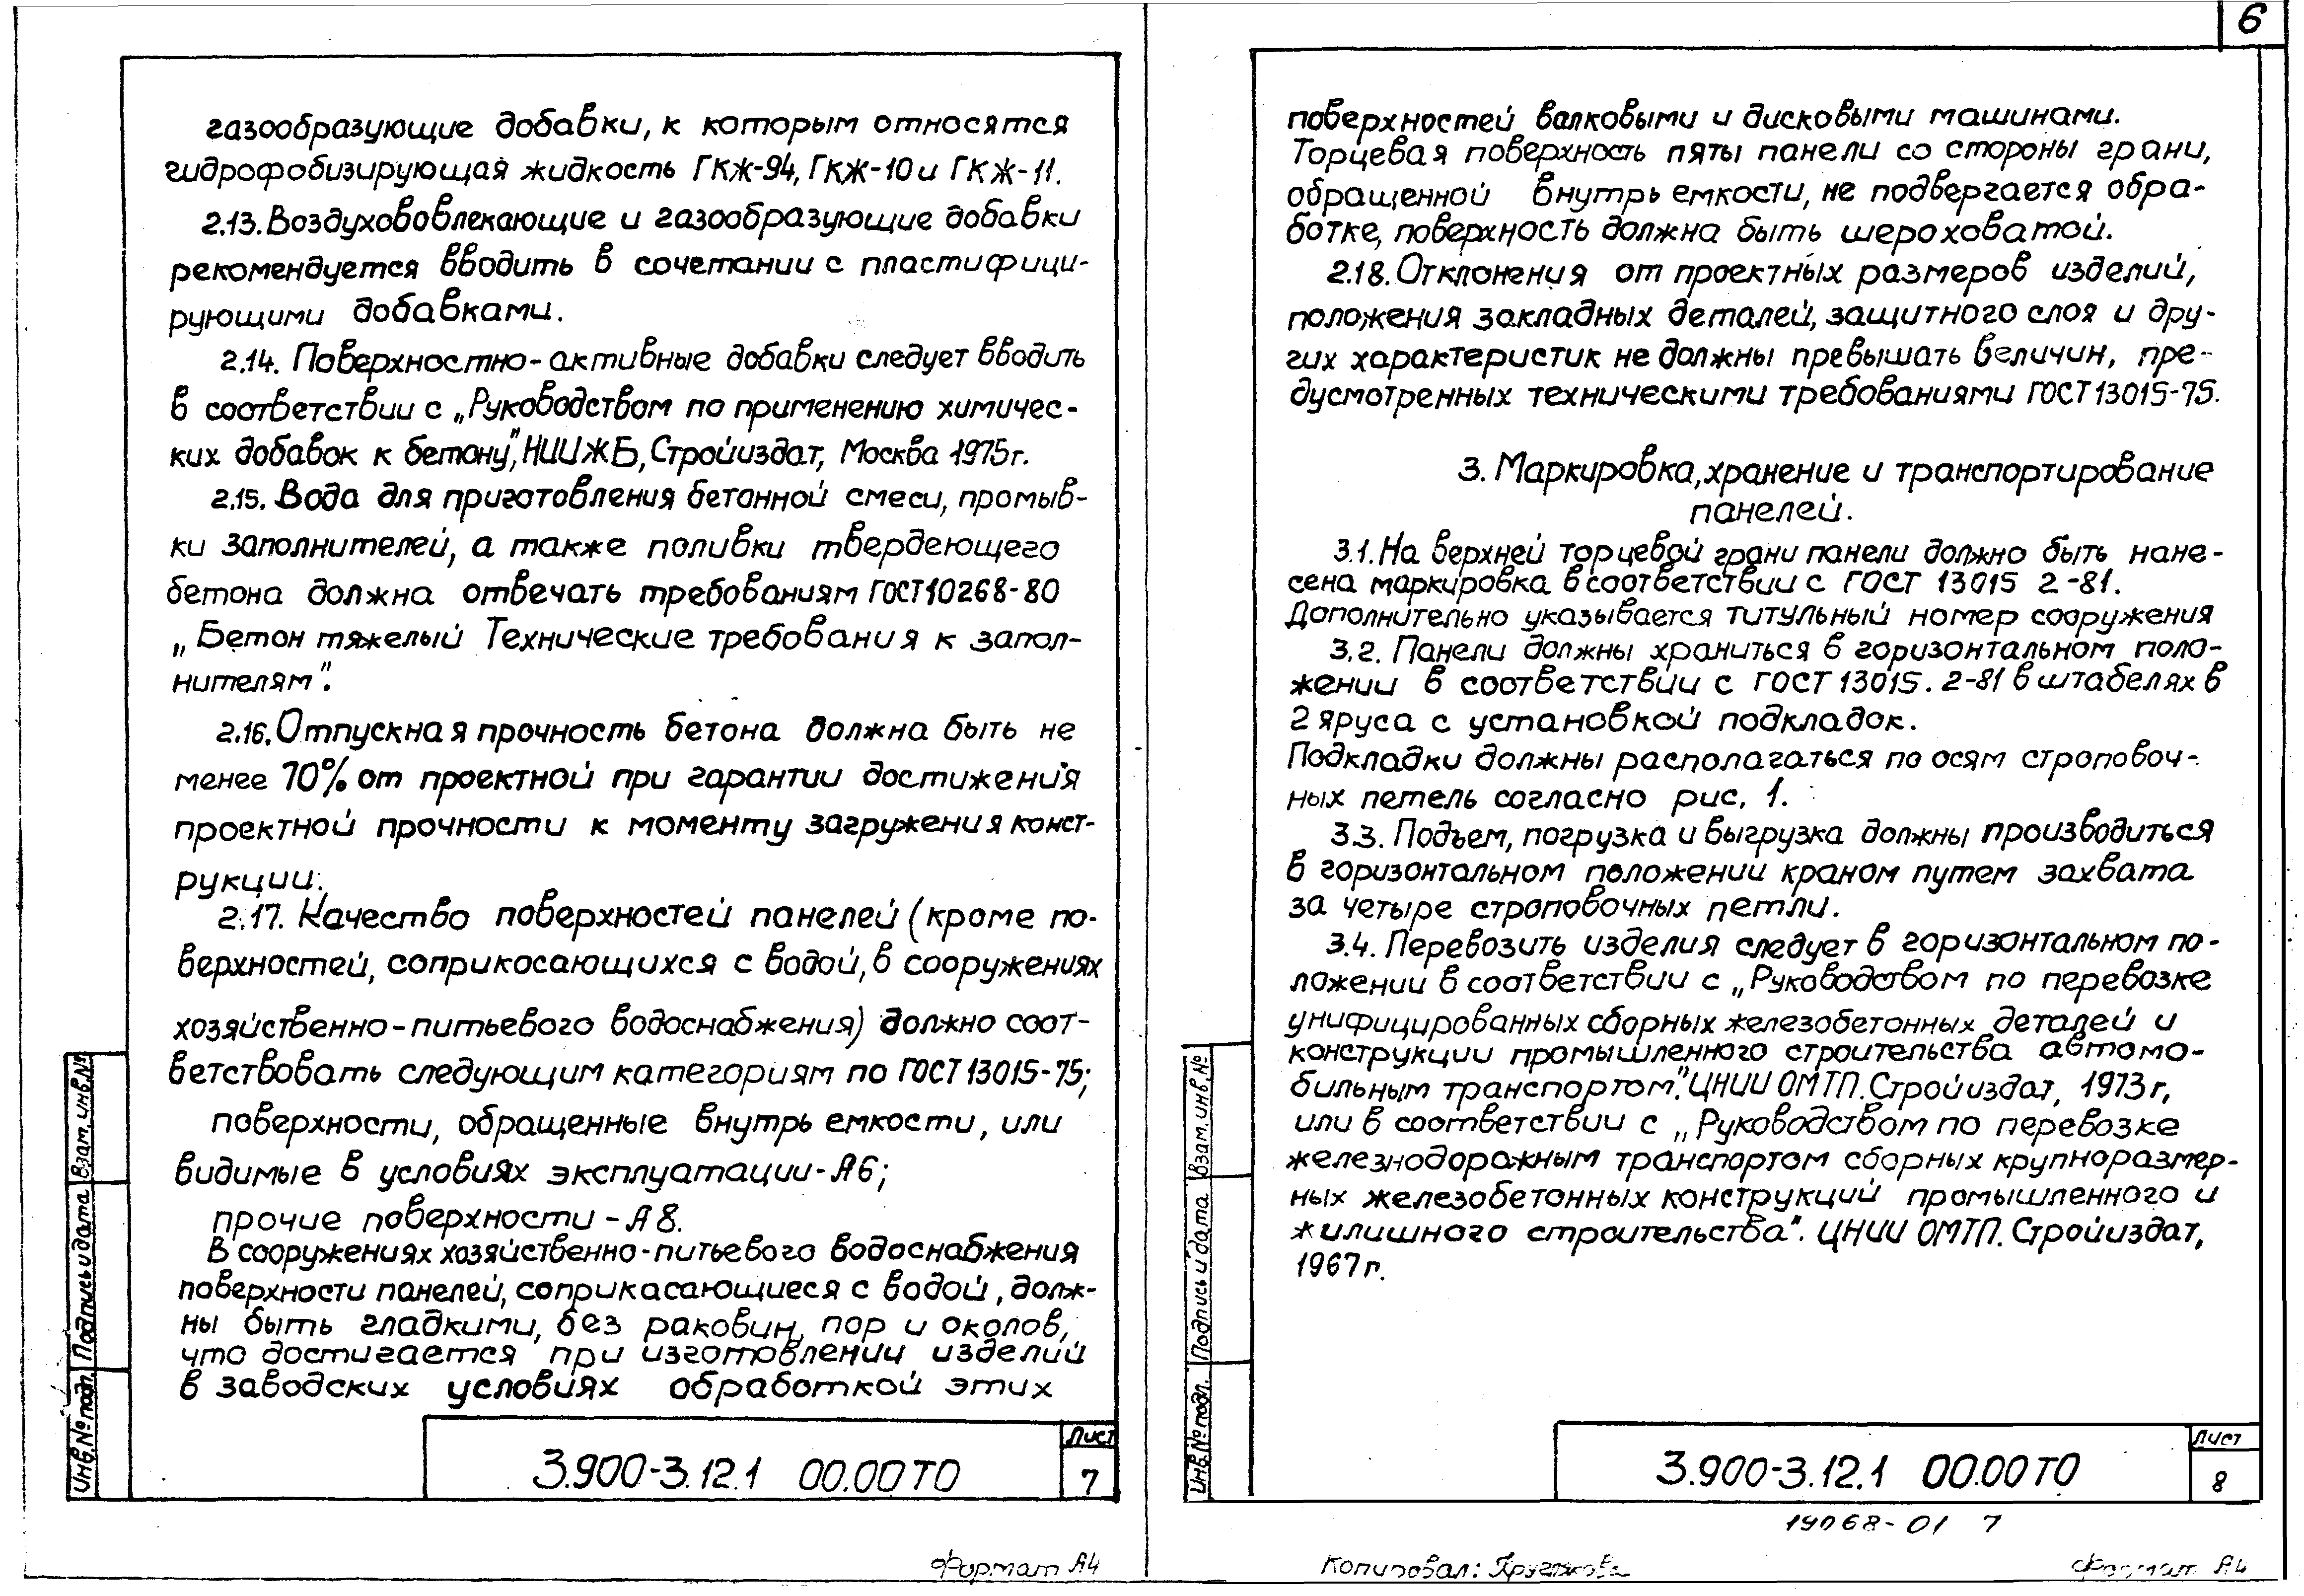 6
газообразующие добавки, к которым относятся
гидрофобизирующая жидкость ГКЖ-94, ГКЖ-10 и ГКЖ-11.
2.13. Воздухововлекающие и газообразующие добавки
рекомендуется вводить в сочетании с пластифици-
рующими добавками.
2.14. Поверхностно-активные добавки следует вводить
в соответствии с „Руководством по применению химичес-
ких добавок к бетону", НИИЖБ, Стройиздат, Москва 1975г.
2.15. Вода для приготовления бетонной смеси, промыв-
ки заполнителей, а также поливки твердеющего
бетона должна отвечать требованиям ГОСТ 10268-80
„Бетон тяжелый Технические требования к запол-
нителям".
2.16. Отпускная прочность бетона должна быть не
менее 70% от проектной при гарантии достижения
проектной прочности к моменту загружения конст-
рукции.
2.17. Качество поверхностей панелей (кроме по-
верхностей, соприкосающихся с водой, в сооружениях
хозяйственно-питьевого водоснабжения) должно соот-
ветствовать следующим категориям по ГОСТ 13015-75;
поверхности, обращенные внутрь емкости, или
видимые в условиях эксплуатации-А6;
прочие поверхности - А8.
В сооружениях хозяйственно-питьевого водоснабжения
поверхности панелей, соприкасающиеся с водой, долж-
ны быть гладкими, без раковин, пор и околов,
что достигается при изготовлении изделий
в заводских условиях обработкой этих
Инв.№подл. Подпись и дата Взам.инв.№
3.900-3.12.1 00.00ТО
Лист
7
Формат А4
поверхностей валковыми и дисковыми машинами.
Торцевая поверхность пяты панели со стороны грани,
обращенной внутрь емкости, не подвергается обра-
ботке, поверхность должна быть шероховатой.
2.18. Отклонения от проектных размеров изделий,
положения закладных деталей, защитного слоя и дру-
гих характеристик не должны превышать величин, пре-
дусмотренных техническими требованиями ГОСТ 13015-75.
3. Маркировка, хранение и транспортирование
панелей.
3.1. На верхней торцевой грани панели должно быть нане-
сена маркировка в соответствии с ГОСТ 13015 2-81.
Дополнительно указывается титульный номер сооружения
3.2. Панели должны храниться в горизонтальном поло-
жении в соответствии с ГОСТ 13015.2-81 в штабелях в
2 яруса с установкой подкладок.
Подкладки должны располагаться по осям строповоч-
ных петель согласно рис. 1.
3.3. Подъем, погрузка и выгрузка должны производиться
в горизонтальном положении краном путем захвата
за четыре строповочных петли.
3.4. Перевозить изделия следует в горизонтальном по-
ложении в соответствии с „Руководством по перевозке
унифицированных сборных железобетонных деталей и
конструкции промышленного строительства автомо-
бильным транспортом". ЦНИИ ОМТП. Стройиздат, 1973г,
или в соответствии с „Руководством по перевозке
железнодорожным транспортом сборных крупноразмер-
ных железобетонных конструкций промышленного и
жилишного строительства". ЦНИИ ОМТП. Стройиздат,
1967г.
Инв.№подл. Подпись и дата Взам.инв.№
3.900-3.12.1 00.00ТО
Лист
8
19068-01 7
Копировал:
Формат А4